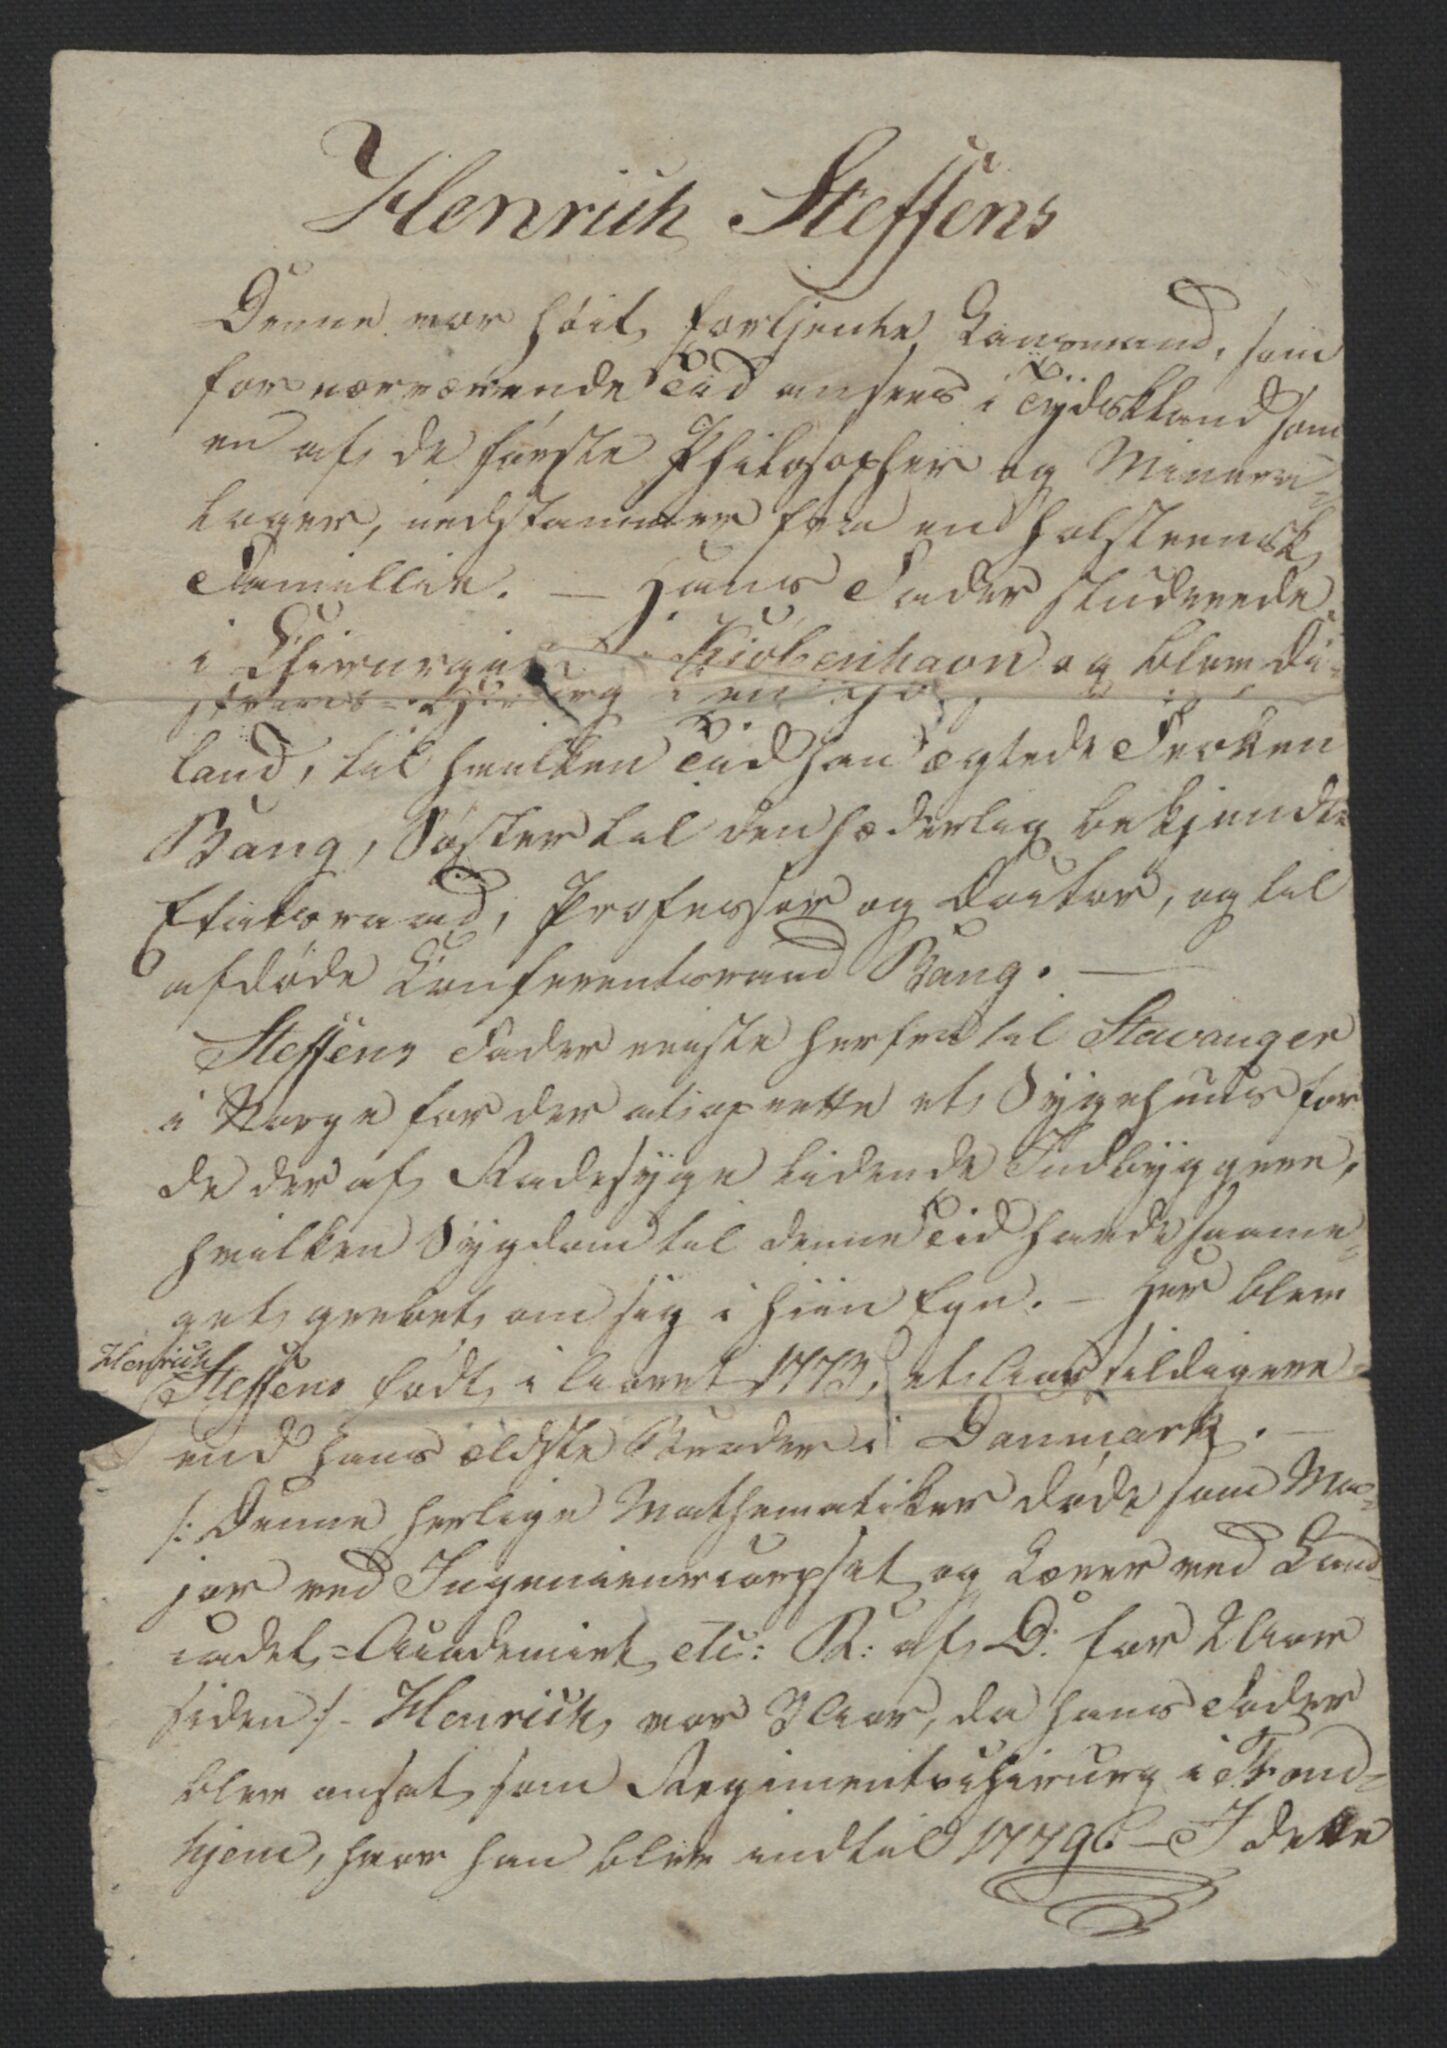 Henrich Steffens
Denne vor høit fortjente Landsmand, som
for nærværende Tid ansees i Tÿdskland som
en af de første Philosopher og Minera-
loger, nedstammer fra en holsteensk
Familie. — Hans Fader studerede
i Kiøbenhavn og blev Di-
stricts-Chirurg i
land, til hvilken Tid han ægtede Frøken
Bang, Søster til den hæderlig bekjendte
Etatsraad, Professor og Doctor, og til
afdøde Conferentsraad Bang. —
Steffens Fader reiste herfra til Stavanger
i Norge for der at oprette et Sygehuus for
de der af Radesyge lidende Indbyggere,
hvilken Sygdom til denne Tid havde saame-
get grebet om sig i hiin Egn. — Her blev
Henrich
Steffens født i Aaret 1773, et Aar sildigere
end hans ældste Broder i Danmark. —
/: Denne herlige Mathematiker døde som Ma-
jor ved Ingenieurcorpset og Lærer ved Land-
cadet=Academiet etc: R: af D: for 2 Aar
siden :/ - Henrich var 3 Aar, da hans Fader
blev ansat som Regimentschirurg i Trond-
hjem, hvor han blev indtil 1779. — I dette